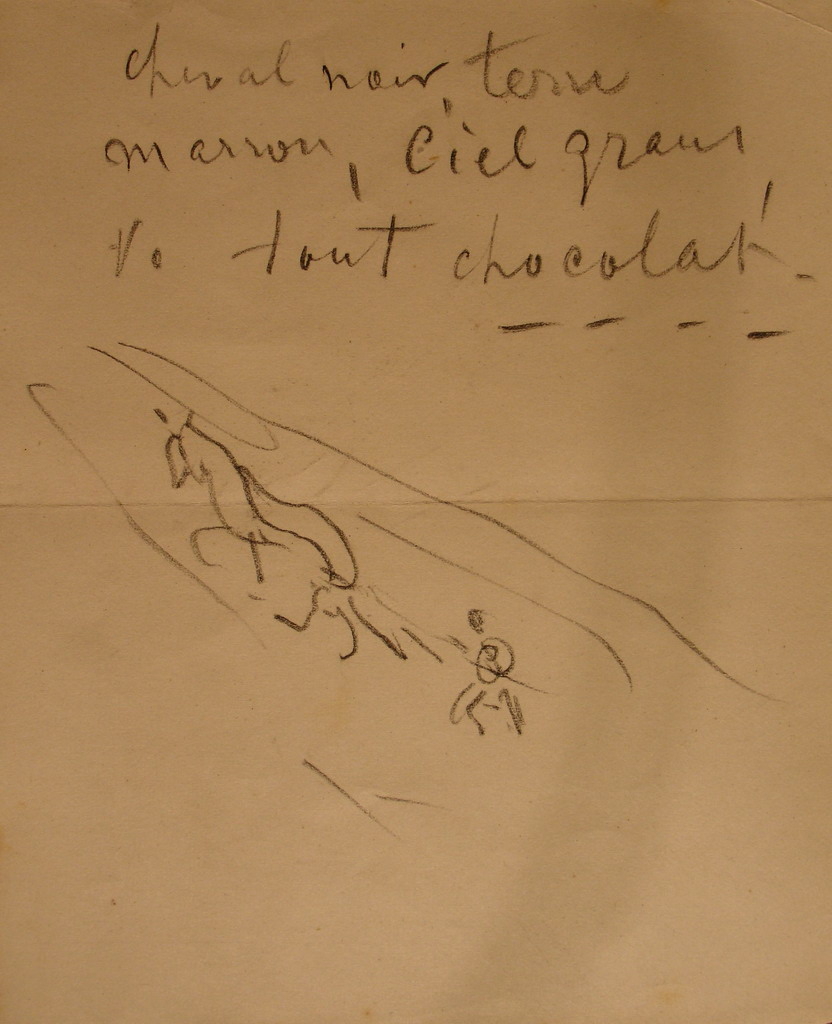 cheval noir, terre
marron, ciel
tout chocolat.